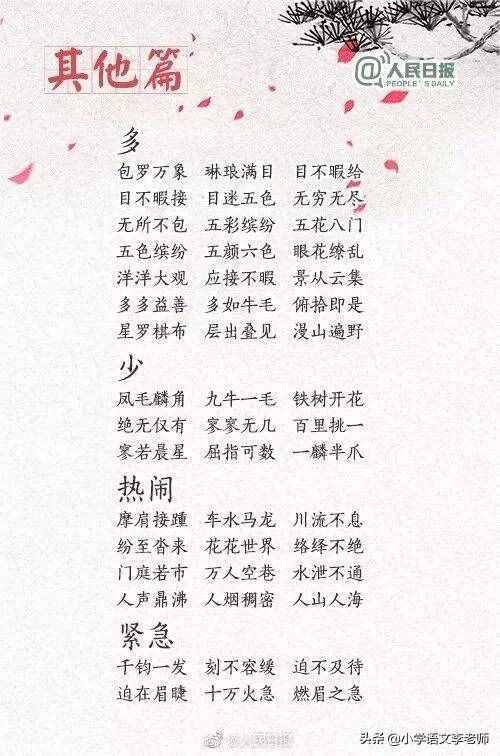 其他篇
@人民日报
PEOPLE'S DAILY
多
包罗万象 琳琅满目 目不暇给
目不暇接 目迷五色 无穷无尽
无所不包 五彩缤纷 五花八门
五色缤纷 五颜六色 眼花缭乱
洋洋大观 应接不暇 景从云集
多多益善 多如牛毛 俯拾即是
星罗棋布 层出叠见 漫山遍野
少
凤毛麟角 九牛一毛 铁树开花
绝无仅有 寥寥无几 百里挑一
寥若晨星 屈指可数 一麟半爪
热闹
摩肩接踵 车水马龙 川流不息
纷至沓来 花花世界 络绎不绝
门庭若市 万人空巷 水泄不通
人声鼎沸 人烟稠密 人山人海
紧急
千钧一发 刻不容缓 迫不及待
迫在眉睫 十万火急 燃眉之急
@人民日报
头条 @小学语文李老师